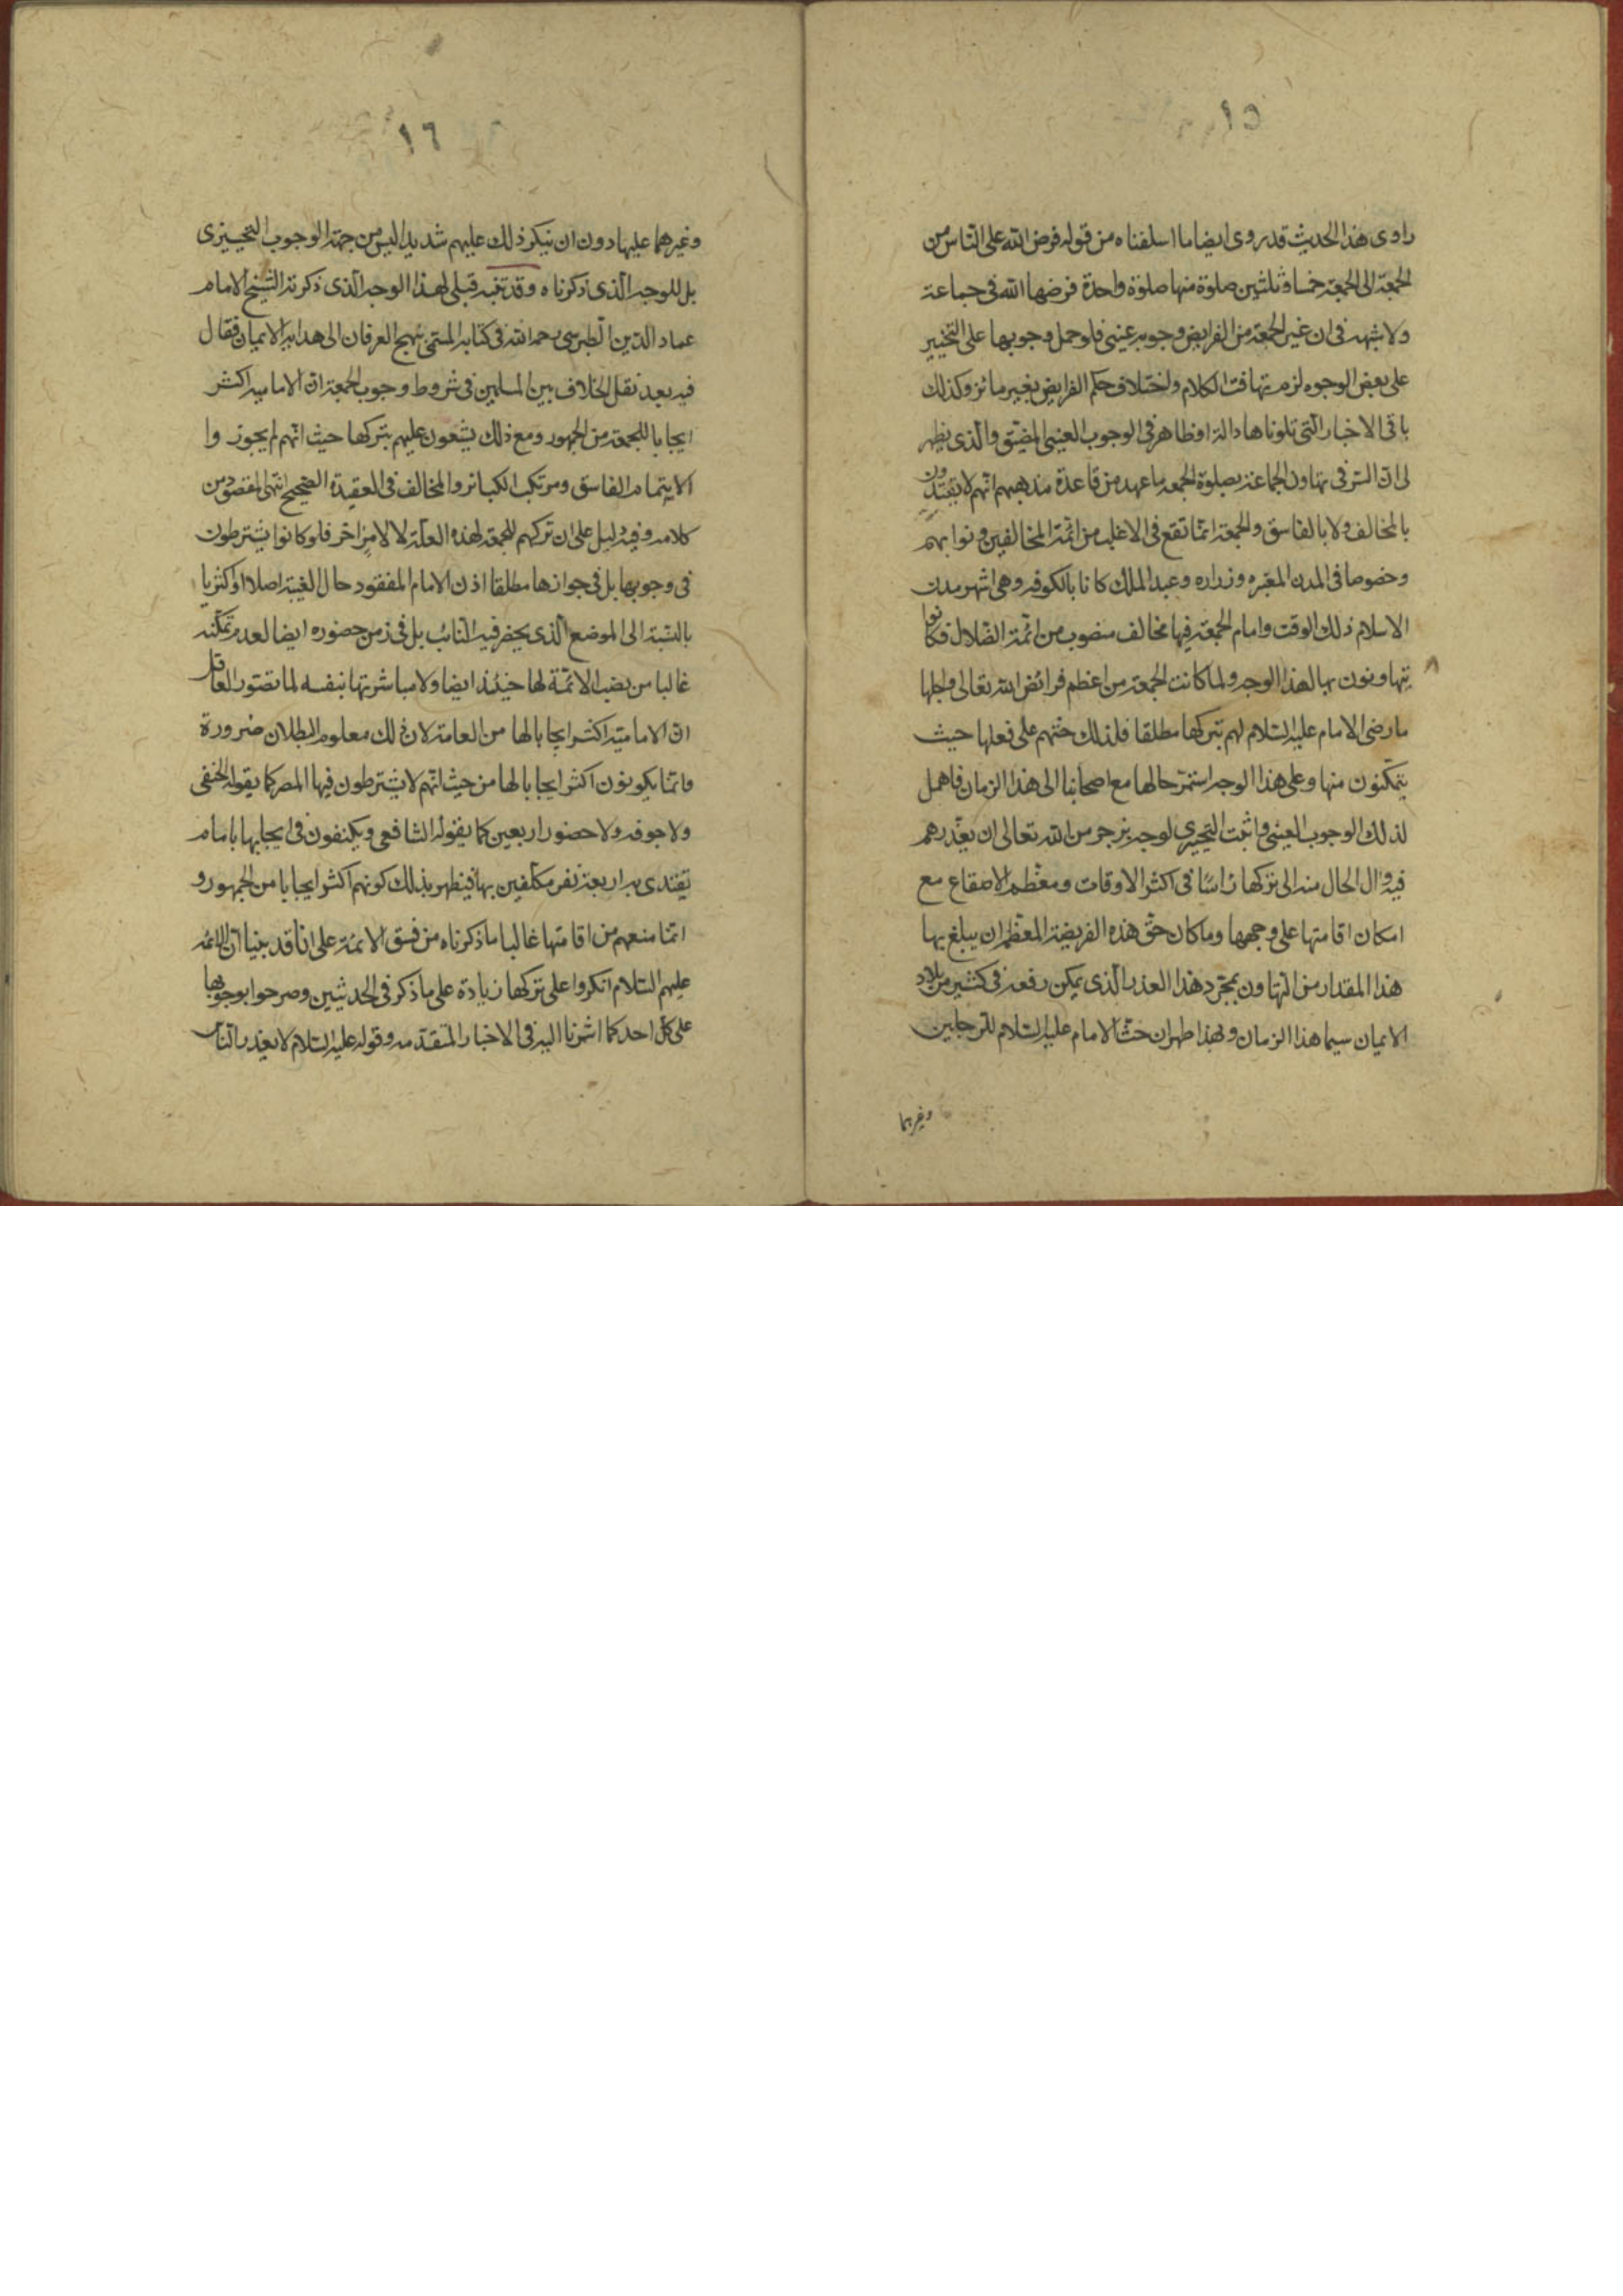 ١٥
راوى هذا الحديث قد روى ايضا ما اسلفناه من قوله فرض الله على الناس من
الجمعة الى الجمعة خمسا وثلثين صلوة منها صلوة واحدة فرضها الله فى جماعة
ولا شبهه فى ان غير الجمعة من الفرايض وجوبه عينى فلو حمل وجوبها على التخيير
على بعض الوجوه لزم تهافت الكلام واختلاف حكم الفرايض بغير مائز وكذلك
باقى الاخبار التى تلوناها دالة او ظاهر فى الوجوب العينى المضيق والذى يظهر
لى ان السر فى تهاون الجماعة بصلوة الجمعه ما عهد من قاعدة مذهبهم انهم لا يقتدون
بالمخالف ولا بالفاسق والجمعة انما تقع فى الاغلب من ائمة المخالفين ونوابهم
وخصوصا فى المدن المعتبره وزراره وعبد الملك كانا بالكوفه وهى اشهر مدن
الاسلام ذلك الوقت وامام الجمعة فيها مخالف منصوب من ائمة الضلال فكانوا
يتهاونون بها لهذا الوجه ولما كانت الجمعة من اعظم فرائض الله تعالى واجلها
ما رضى الامام عليه السلام لهم بتركها مطلقا فلذلك حثهم على فعلها حيث
يتمكنون منها وعلى هذا الوجه استمر حالها مع اصحابنا الى هذا الزمان فاهمل
لذلك الوجوب العينى واثبت التخييرى لوجه نرجو من الله تعالى ان يعذرهم
فيه وال الحال منه الى تركها راسا فى اكثر الاوقات ومعظم الاصقاع مع
امكان اقامتها على وجهها وما كان حق هذه الفريضة المعظم ان يبلغ بها
هذا المقدار من التهاون بمجرد هذا العذر الذى يمكن رفعه فى كثير من بلاد
الايمان سيما هذا الزمان وبهذا ظهر ان حث الامام عليه السلام للرجلين
وغيرهما
١٦
وغيرهما عليها دون ان ينكر ذلك عليهم شديدا ليس من جهة الوجوب التخييرى
بل للوجه الذى ذكرناه وقد تنبه قبلى لهذا الوجه الذى ذكرته الشيخ الامام
عماد الدين الطبرسى رحمه الله فى كتابه المسمى نهج العرفان الى هدايه الايمان فقال
فيه بعد نقل الخلاف بين المسلمين فى شروط وجوب الجمعة ان الاماميه اكثر
ايجابا للجمعة من الجمهور ومع ذلك يشنعون عليهم بتركها حيث انهم لم يجوزوا
الايتمام بالفاسق ومرتكب الكبائر والمخالف فى العقيدة الصحيح انتهى المقصود من
كلامه وفيه دليل على ان تركهم للجمعة لهذه العلة لا لامر اخر فلو كانوا يشترطون
فى وجوبها بل فى جوازها مطلقا اذن الامام المفقود حال الغيبة اصلا او اكثريا
بالنسبة الى الموضع الذى يحضر فيه النائب بل فى زمن حضوره ايضا لعدم تمكنه
غالبا من نصب الائمة لها حينئذ ايضا ولا مباشرتها بنفسه لما تصور العاقل
ان الامامية اكثر ايجابا لها من العامة لان ذلك معلوم البطلان ضرورة
وانما يكونون اكثر ايجابا لها من حيث انهم لا يشترطون فيها المصر كما يقوله الحنفى
ولا جوفه ولا حضور اربعين كما يقوله الشافعى ويكتفون فى ايجابها بامام
يقتدى به اربعة نفر مكلفين بها فيظهر بذلك كونهم اكثر ايجابا من الجمهور و
انما منعهم من اقامتها غالبا ما ذكرناه من فسق الائمة على انا قد بينا ان الائمه
عليهم السلام انكروا على تركها زيادة على ما ذكر فى الحديثين وصرحوا بوجوبها
على كل احد كما اشرنا اليه فى الاخبار المتقدمه وقوله عليه السلام لا يعذر الناس